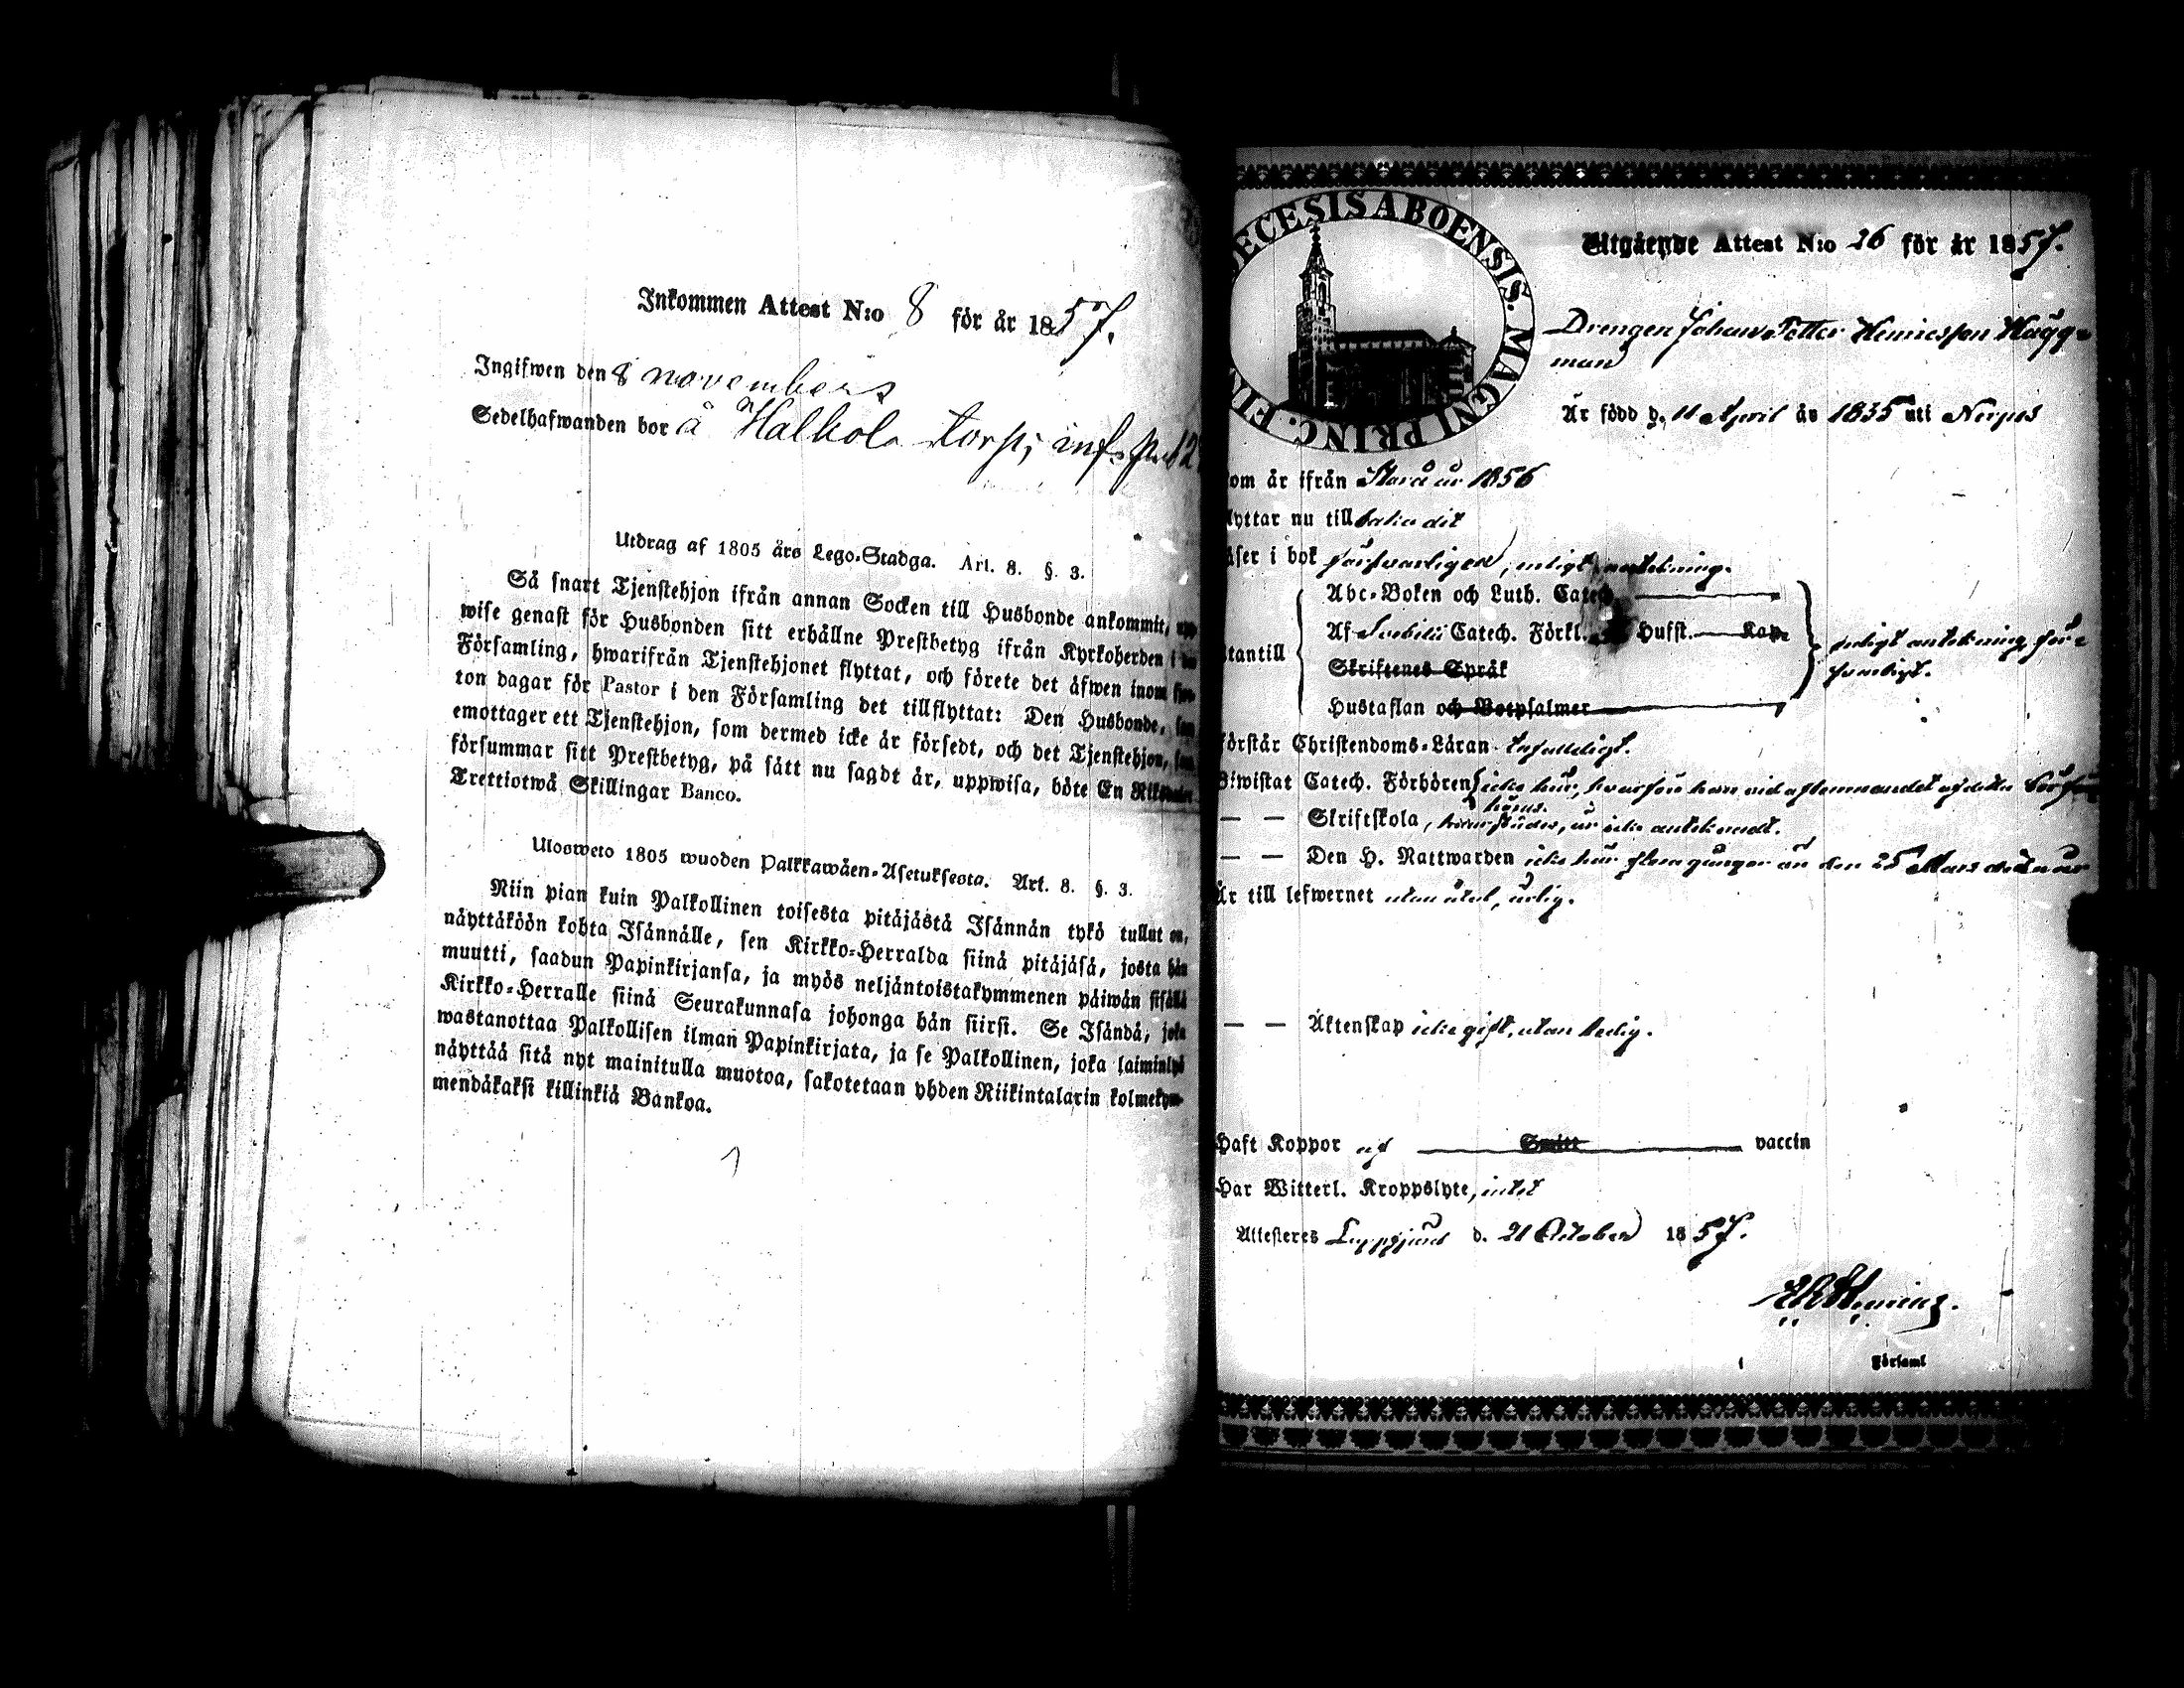 Inkommen Attest N:o 8 för år 1857.
Ingifwen den 8 novembers
Sedelhafwanden bor å Halkola torp, inf. 12
Utdrag af 1805 års Lego-Stadga. Art. 8. §. 3.
Så snart Tjenstehjon ifrån annan Socken till Husbonde ankommit, upp
wise genast för Husbonden sitt erhållne Prestbetyg ifrån Kyrkoherden i
Församling, hwarifrån Tjenstehjonet flyttat, och förete det äfwen inom
ton dagar för Pastor i den Församling det tillflyttat: Den Husbonde, som
emottager ett Tjenstehjon, som dermed icke är försedt, och det Tjenstehjon, som
försummar sitt Prestbetyg, på sätt nu sagdt är, uppwisa, böte En Riksdaler
Trettiotwå Skillingar Banco.
Ulosweto 1805 wuoden Palkkawäen-Asetuksesta. Art. 8. §. 3.
Niin pian kuin Palkollinen toisesta pitäjästä Isännän tykö tullut on,
näyttäköön kohta Isännälle, sen Kirkko-Herralda siinä pitäjäsä, josta hän
muutti, saadun Papinkirjansa, ja myös neljäntoistakymmenen päiwän sisällä
Kirkko-Herralle siinä Seurakunnasa johonga hän siirsi. Se Isändä, joka
wastanottaa Palkollisen ilman Papinkirjata, ja se Palkollinen, joka laiminlyö
näyttää sitä nyt mainitulla muotoa, sakotetaan yhden Riikintalarin kolmekym-
mendäkaksi killinkiä Bankoa.
ECESIS ABOENSIS. MAGNI PRINC. FIN
Utgående Attest N:o 26 för år 1857.
Drengen Johan Petter Henricsson Hägg-
man
Är född d. 11 April år 1835 uti Nerpes
om är ifrån år 1856
lyttar nu till baka dit
äser i bok försvarligen, enligt anteckning.
Abc-Boken och Luth. Catech.
Af Svebilii Catech. Förkl. Husst. Kap.
tantill enligt anteckning för-
Skriftenes Språk
svarligt.
Hustaflan och Botpsalmer
örstår Christendoms-Läran enfalldigt.
Biwistat Catech. Förhören icke här, hvarföre han vid aflemnandet af detta bör
höras.
— — Skriftskola, är icke antecknadt.
— — Den H. Nattwarden icke här flera gånger än den 25 Mars detta år
Är till lefwernet utan åtal, ärlig.
— — Äktenskap icke gift, utan ledig.
Haft Koppor af Smitt vaccin
Har Witterl. Kroppslyte, intet
Attesteres Lappfjärd d. 21 October 1857.
Församl